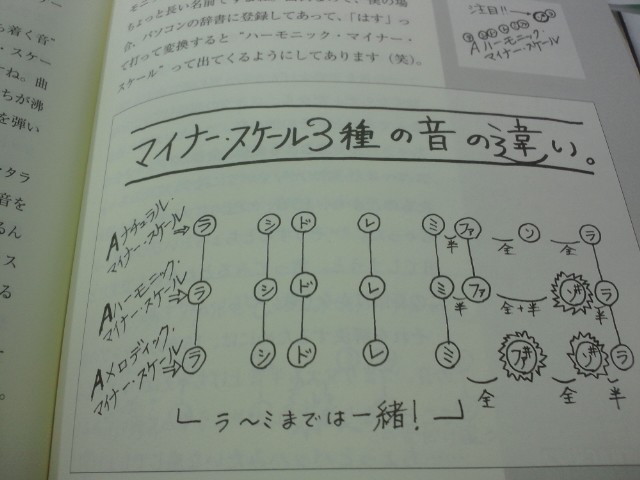 ち着く音"
ちょっと長い名前ですよね。
・スケー
合、パソコンの辞書に登録してあって、「はす」っ
て打って変換すると"ハーモニック・マイナー・
ーね。曲
スケール"って出てくるようにしてあります（笑）。
ちが沸
を弾い
タラ
音を
るん
ス
る
注目!!
Aハーモニック・
マイナー・スケール
マイナー・スケール3種の音の違い。
Aナチュラル・
マイナー・スケール
ラ シ ド レ ミ 半 ファ 全 ソ 全 ラ
Aハーモニック・
マイナー・スケール
ラ シ ド レ ミ 半 ファ 全+半 ソ# 半 ラ
Aメロディック・
マイナー・スケール
ラ シ ド レ ミ 全 ファ# 全 ソ# 半 ラ
ラ〜ミまでは一緒!